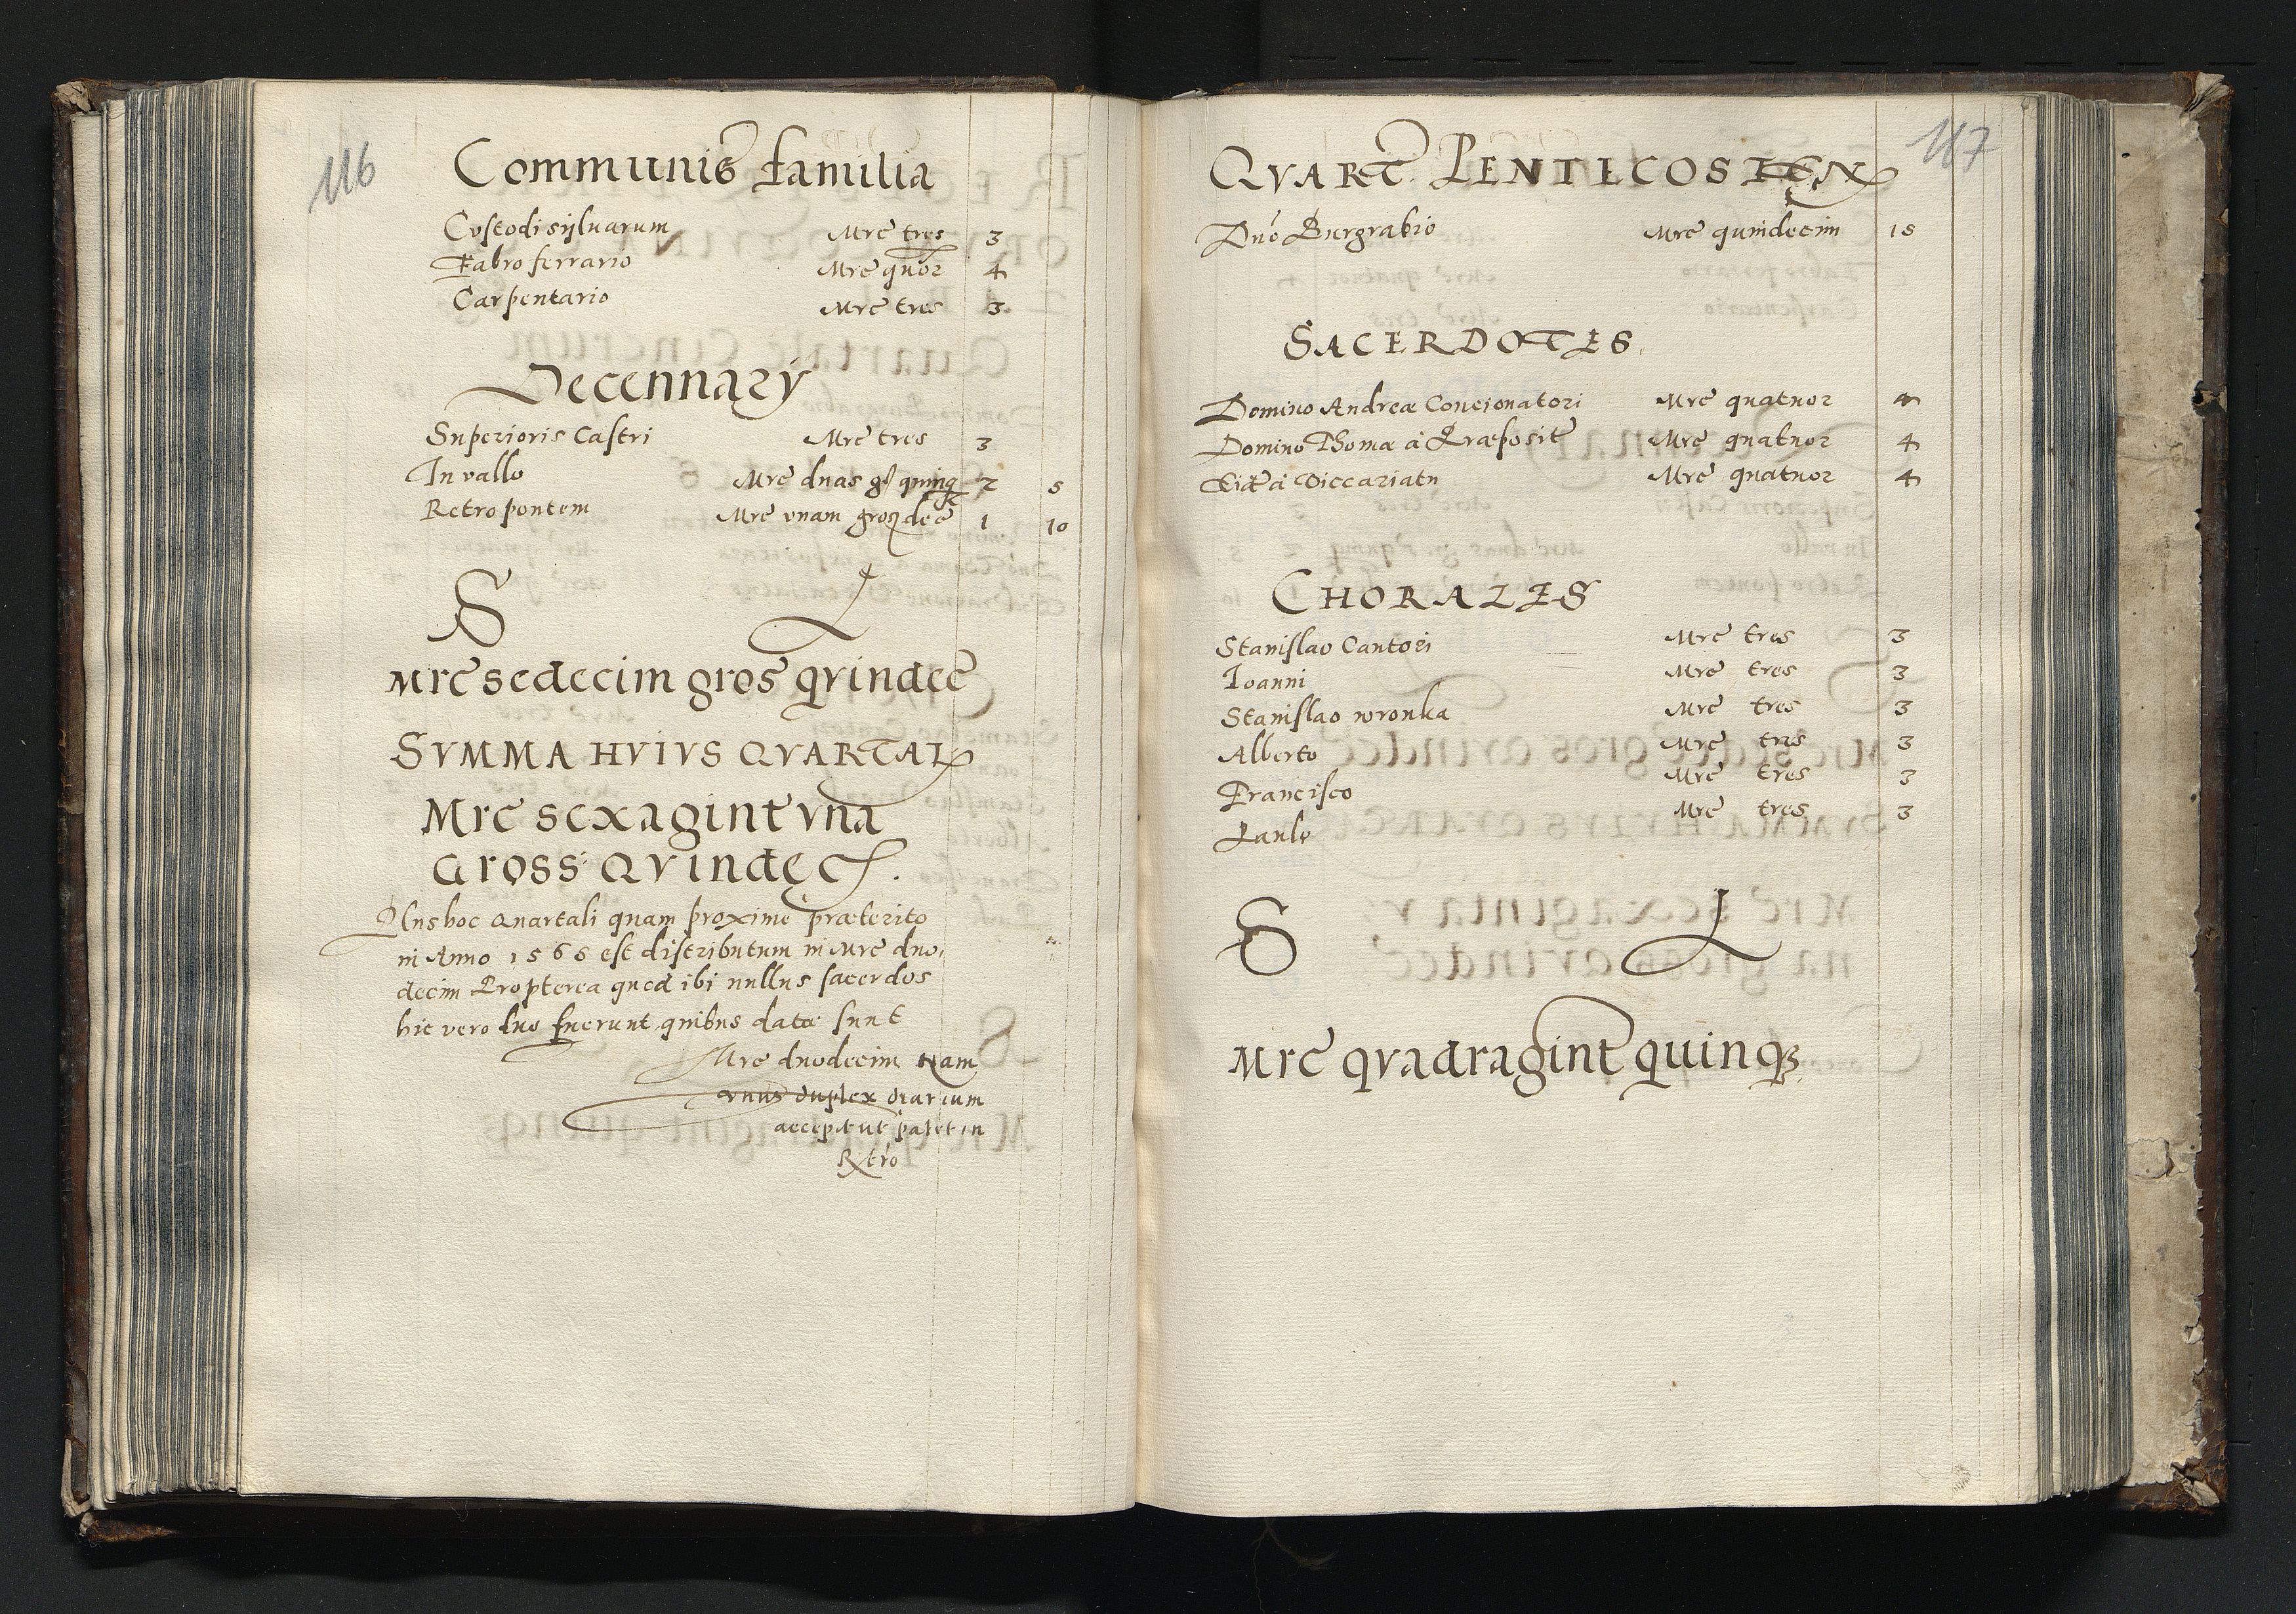 116
Communis familia
Custodi sijluarum Mrc tres 3
Fabro ferrario Mrc quor 4
Carpentario Mrc tres 3
Decennarÿ
Superioris Castri Mrc tres 3
In vallo Mrc duas gß quinq 2 5
Retro pontem Mrc vnam gros dec 1 10
S L
Mrc sedecim gros qvindec
SVMMA HVIVS QVARTAL
Mrc sexagint vna
Gross Qvindec
Plus hoc Quartali quam proxime præterito
in Anno 1565 est distributum in Mrc duo,
decim Propterea quod ibi nullus sacerdos
hic vero duo fuerunt quibus datæ sunt
Mrc duodecim Nam
vnus duplex diarium
accepit ut patet in
Retro
117
QVART PENTECOSTEN
Dno Burgrabio Mrc quindecim 15
SACERDOTES.
Domino Andreæ Concionatori Mrc quatuor 4
Domino Thomæ à Præposit Mrc quatuor 4
Eid à Viccariatu Mrc quatuor 4
CHORALES
Stanislao Cantori Mrc tres 3
Ioanni Mrc tres 3
Stanislao wronka Mrc tres 3
Alberto Mrc tres 3
Francisco Mrc tres 3
Paulo Mrc tres 3
S L
Mrc qvadragint quinq3